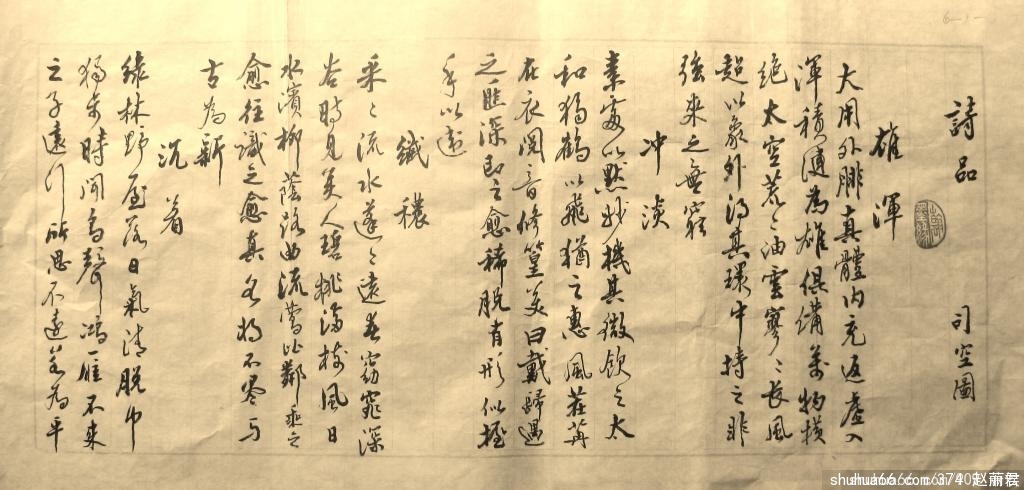 詩品 司空圖
雄渾
大用外腓真體內充返虛入
渾積健為雄俱備萬物橫
絕太空荒〻油雲寥〻長風
超以象外得其環中持之非
強來之無窮
冲淡
素處以默妙機其微飲之太
和獨鶴以飛猶之惠風荏苒
在衣閱音修篁美曰載歸遇
之匪深即之愈稀脫有形似握
手以違
纖穠
采〻流水蓬〻遠春窈窕深
谷時見美人碧桃滿樹風日
水濱柳蔭路曲流鶯比鄰乘之
愈往識之愈真如將不盡與
古為新
沉着
綠林野屋落日氣清脫巾
獨步時聞鳥聲鴻雁不來
之子遠行所思不遠若為平